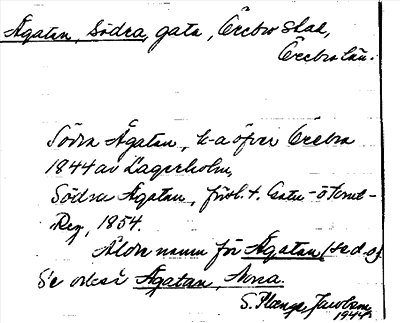 Ågatan, Södra, gata, Örebro stad,
Örebro län.
Södra Ågatan, k-a öfver Örebro
1844 av Lagerholm,
Södra Ågatan, förl. t. Gatu- o Tomt-
Reg, 1854.
Äldre namn för Ågatan (se d.o)
Se också Ågatan, Norra.
S. Jacobson
1944